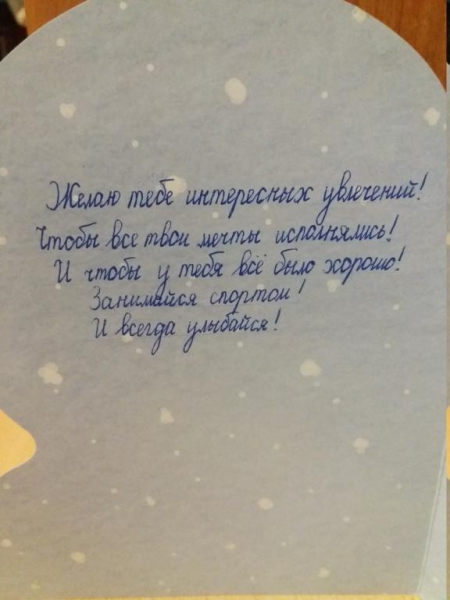 Желаю тебе интересных увлечений!
Чтобы все твои мечты исполнялись!
И чтобы у тебя всё было хорошо!
Занимайся спортом!
И всегда улыбайся!